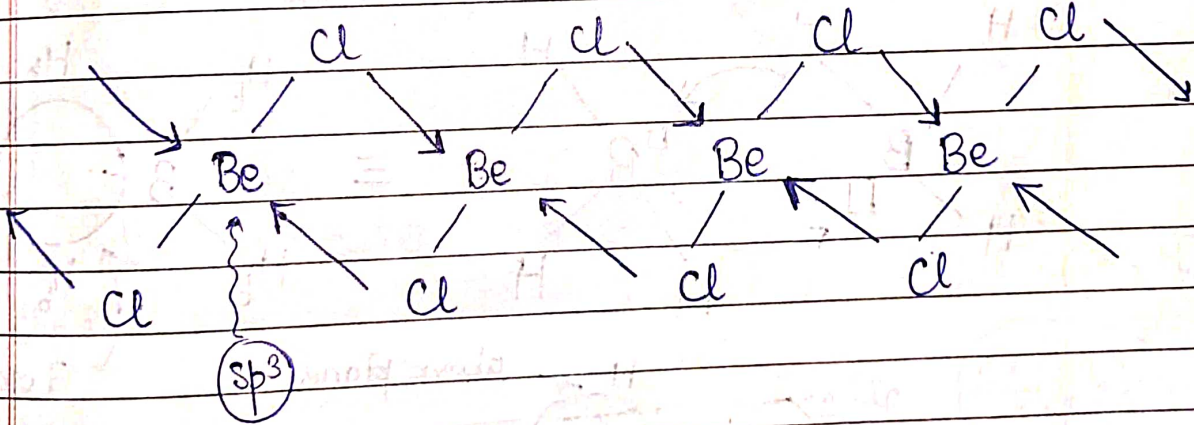 Cl Cl Cl Cl
Be Be Be Be
Cl Cl Cl Cl
sp³